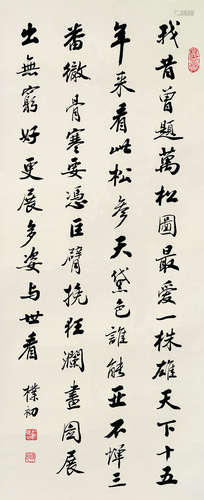 我昔曾題萬松圖最愛一株雄天下十五
年来看此松參天黛色誰能亞不憚三
番徹骨寒要憑巨臂挽狂瀾畫圖展
出無窮好更展多姿与世看
樸初